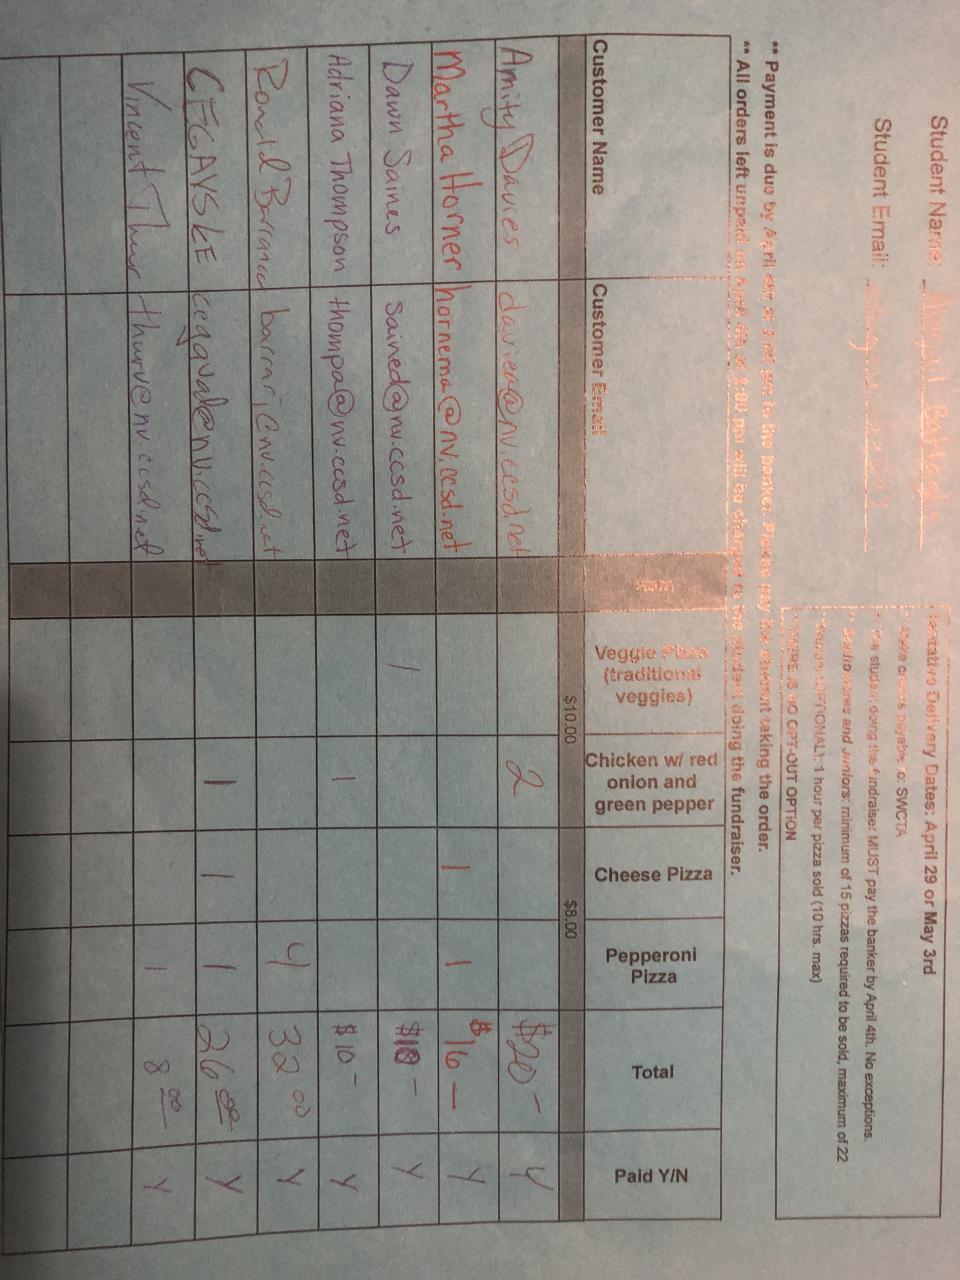 Student Name:
Student Email:
Tentative Delivery Dates: April 29 or May 3rd
payable to: SWCTA
student doing the fundraiser MUST pay the banker by April 4th. No exceptions.
and Juniors: minimum of 15 pizzas required to be sold, maximum of 22
1 hour per pizza sold (10 hrs. max)
NO OPT-OUT OPTION
** Payment is due by April to the banker. Please pay the student taking the order.
** All orders left unpaid will be charged to the student doing the fundraiser.
Customer Name Customer Email Item Veggie Pizza (traditional veggies) Chicken w/ red onion and green pepper Cheese Pizza Pepperoni Pizza Total Paid Y/N
$10.00 $8.00
Amity Davies daviea@nv.ccsd.net 2 $20- Y
Martha Horner hornema@nv.ccsd.net 1 1 $16- Y
Dawn Saines sained@nv.ccsd.net 1 $10- Y
Adriana Thompson thompa@nv.ccsd.net 1 $10- Y
Ronald 4 32 00 Y
CEGAVSKE 1 1 1 26 00 Y
Vincent Thur thurv@nv.ccsd.net 1 8 00 Y